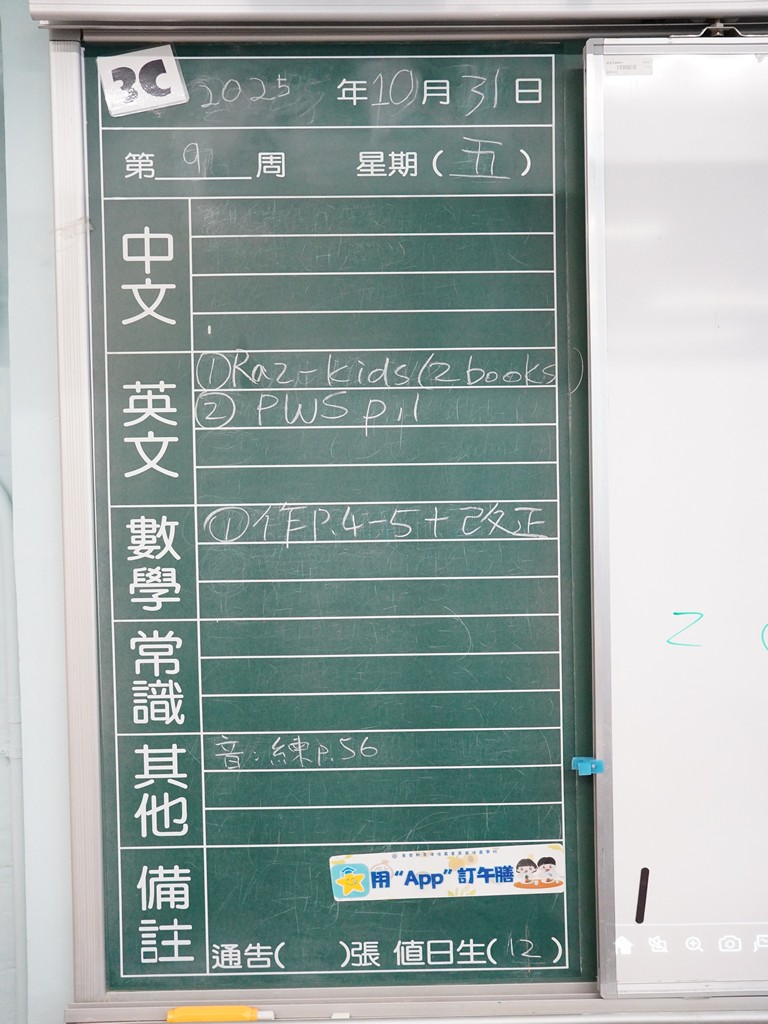 3C 2025 年 10 月 31 日
第 9 周 星期 ( 五 )
中文
英文
① Raz-kids (2 books)
② PWS p.11
數學
① 作P.4-5+改正
常識
其他
音:練p.56
備註
用 “App” 訂午膳
通告( )張 值日生( 12 )
Z